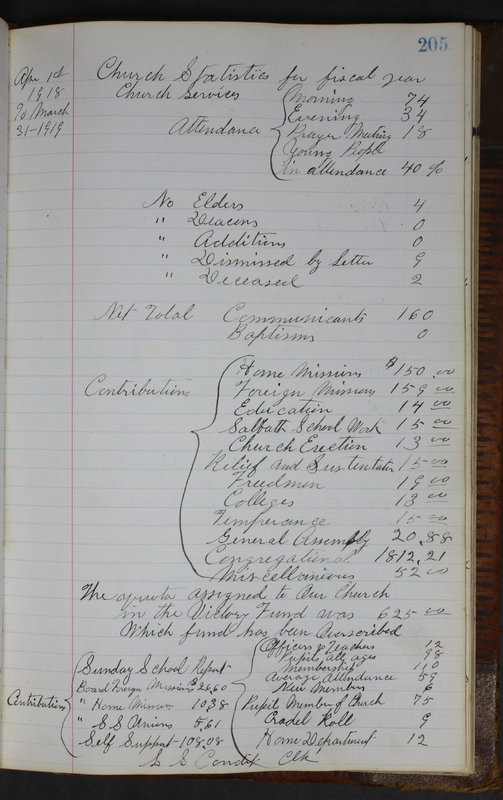 205
Apr 1st
1918
To March
31-1919
Church Statistics for fiscal year
Church Services Morning 74
Evening 34
Attendance Prayer Meeting 18
Young People
in attendance 40 %
No Elders 4
" Deacons 0
" Additions 0
" Dismissed by Letter 9
" Deceased 2
Net Total Communicants 160
Baptisms 0
Contributions Home Missions $150.00
Foreign Missions 159 00
Education 14 00
Sabbath School Work 15 00
Church Erection 13 00
Relief and Sustentation 15 00
Freedmen 19 00
Colleges 13 00
Temperance 15 00
General Assembly 20.88
Congregational 1812.21
Miscellaneous 52 00
The quota assigned to Our Church
in the Victory Fund was 625 00
Which fund has been Overscribed
Sunday School Report
Officers & Teachers 12
Pupils all ages 98
Membership 110
Average Attendance 59
New Members 6
Pupils Member of Church 75
Cradel Roll 9
Home Department 12
Contributions
Board Foreign Missions $26.60
" Home Missions 10.38
" S S Unions 5.61
Self Support - 108.08
Condit Clk